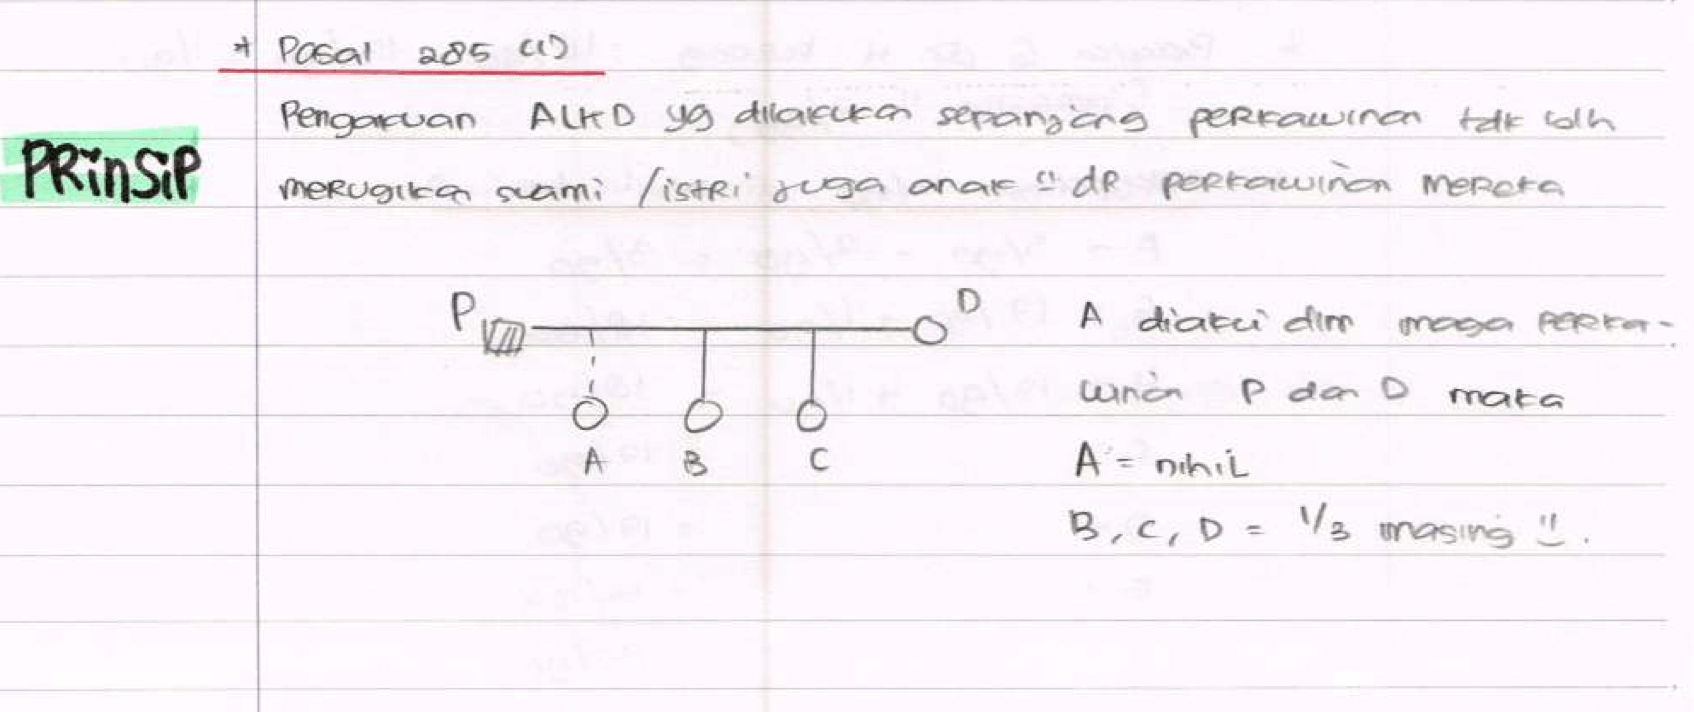 * Pasal 285 (1)
Pengakuan ALKD yg dilakukan sepanjang perkawinan tdk blh
PRinSiP
merugikan suami / istri juga anak" dr perkawinan mereka
P D
A B C
A diakui dlm masa perka-
winan P dan D maka
A = nihil
B, C, D = 1/3 masing".